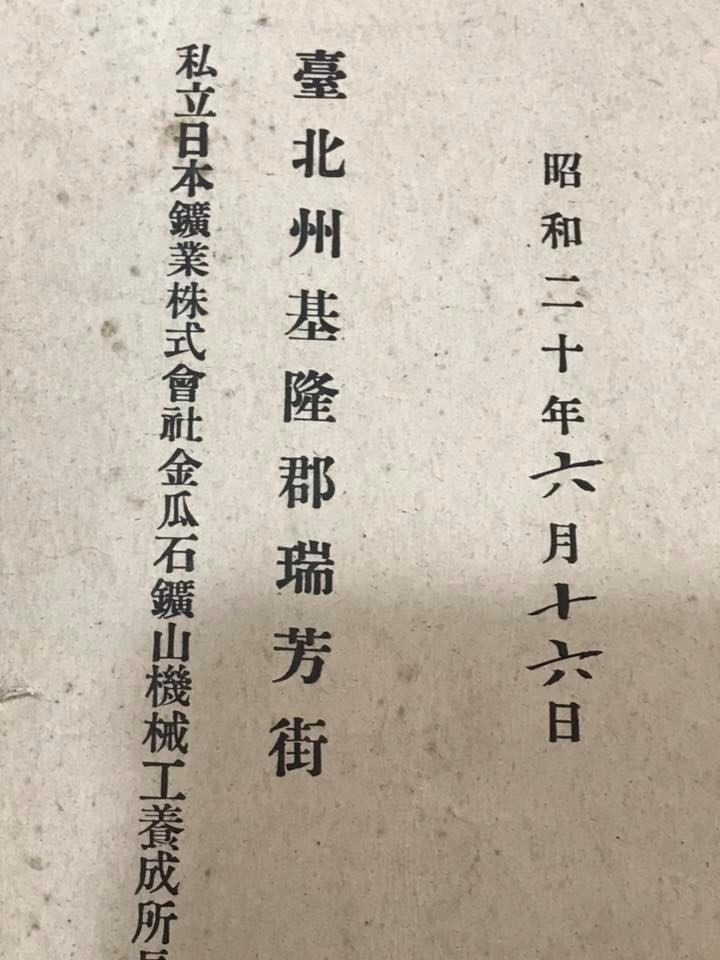 昭和二十年六月十六日
臺北州基隆郡瑞芳街
私立日本鑛業株式會社金瓜石鑛山機械工養成所